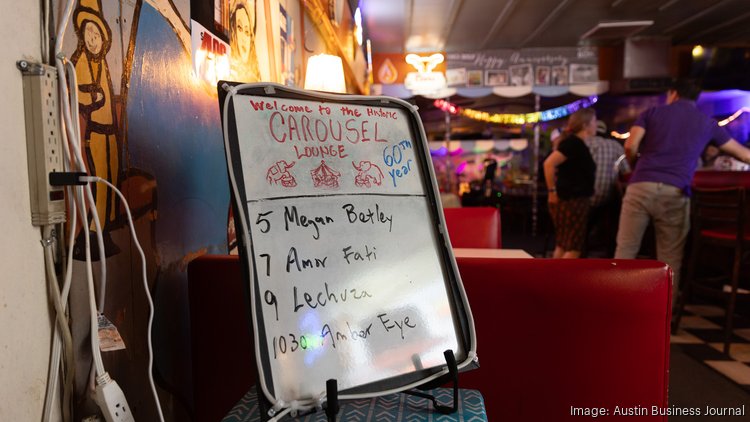 Welcome to the Historic
CAROUSEL
LOUNGE
60TH
year
5 Megan Betley
7 Amor Fati
9 Lechuza
1030 Amber Eye
Happy Anniversary
Image: Austin Business Journal